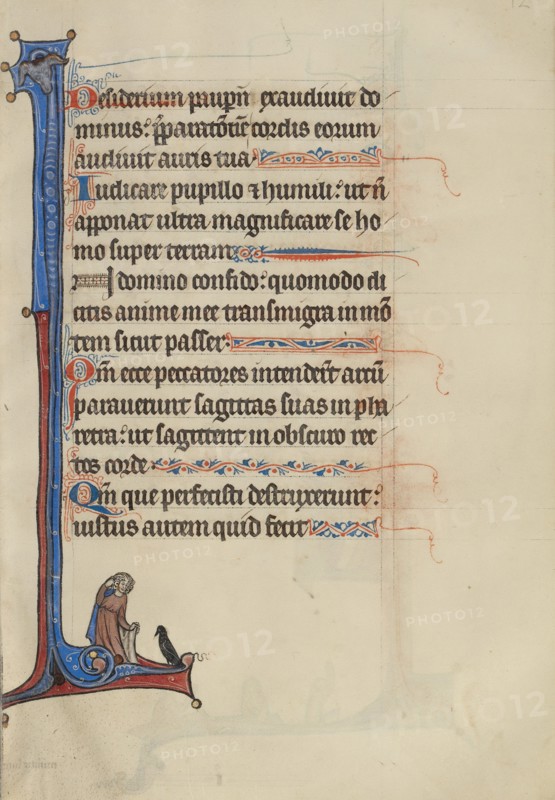 Desiderium paup̄ū exaudiuit do
minus: p̄paratōnē cordis eorum
audiuit auris tua
Iudicare pupillo ⁊ humili: ut nͫ
apponat ultra magnificare se ho
mo super terram
In domino confido: quomodo di
citis anime mee transmigra in mō
tem sicut passer:
Qm̄ ecce peccatores intender̄t arcū
parauerunt sagittas suas in pha
retra: ut sagittent in obscuro rec
tos corde
Qm̄ que perfecisti destruxerunt:
iustus autem quid fecit
PHOTO12